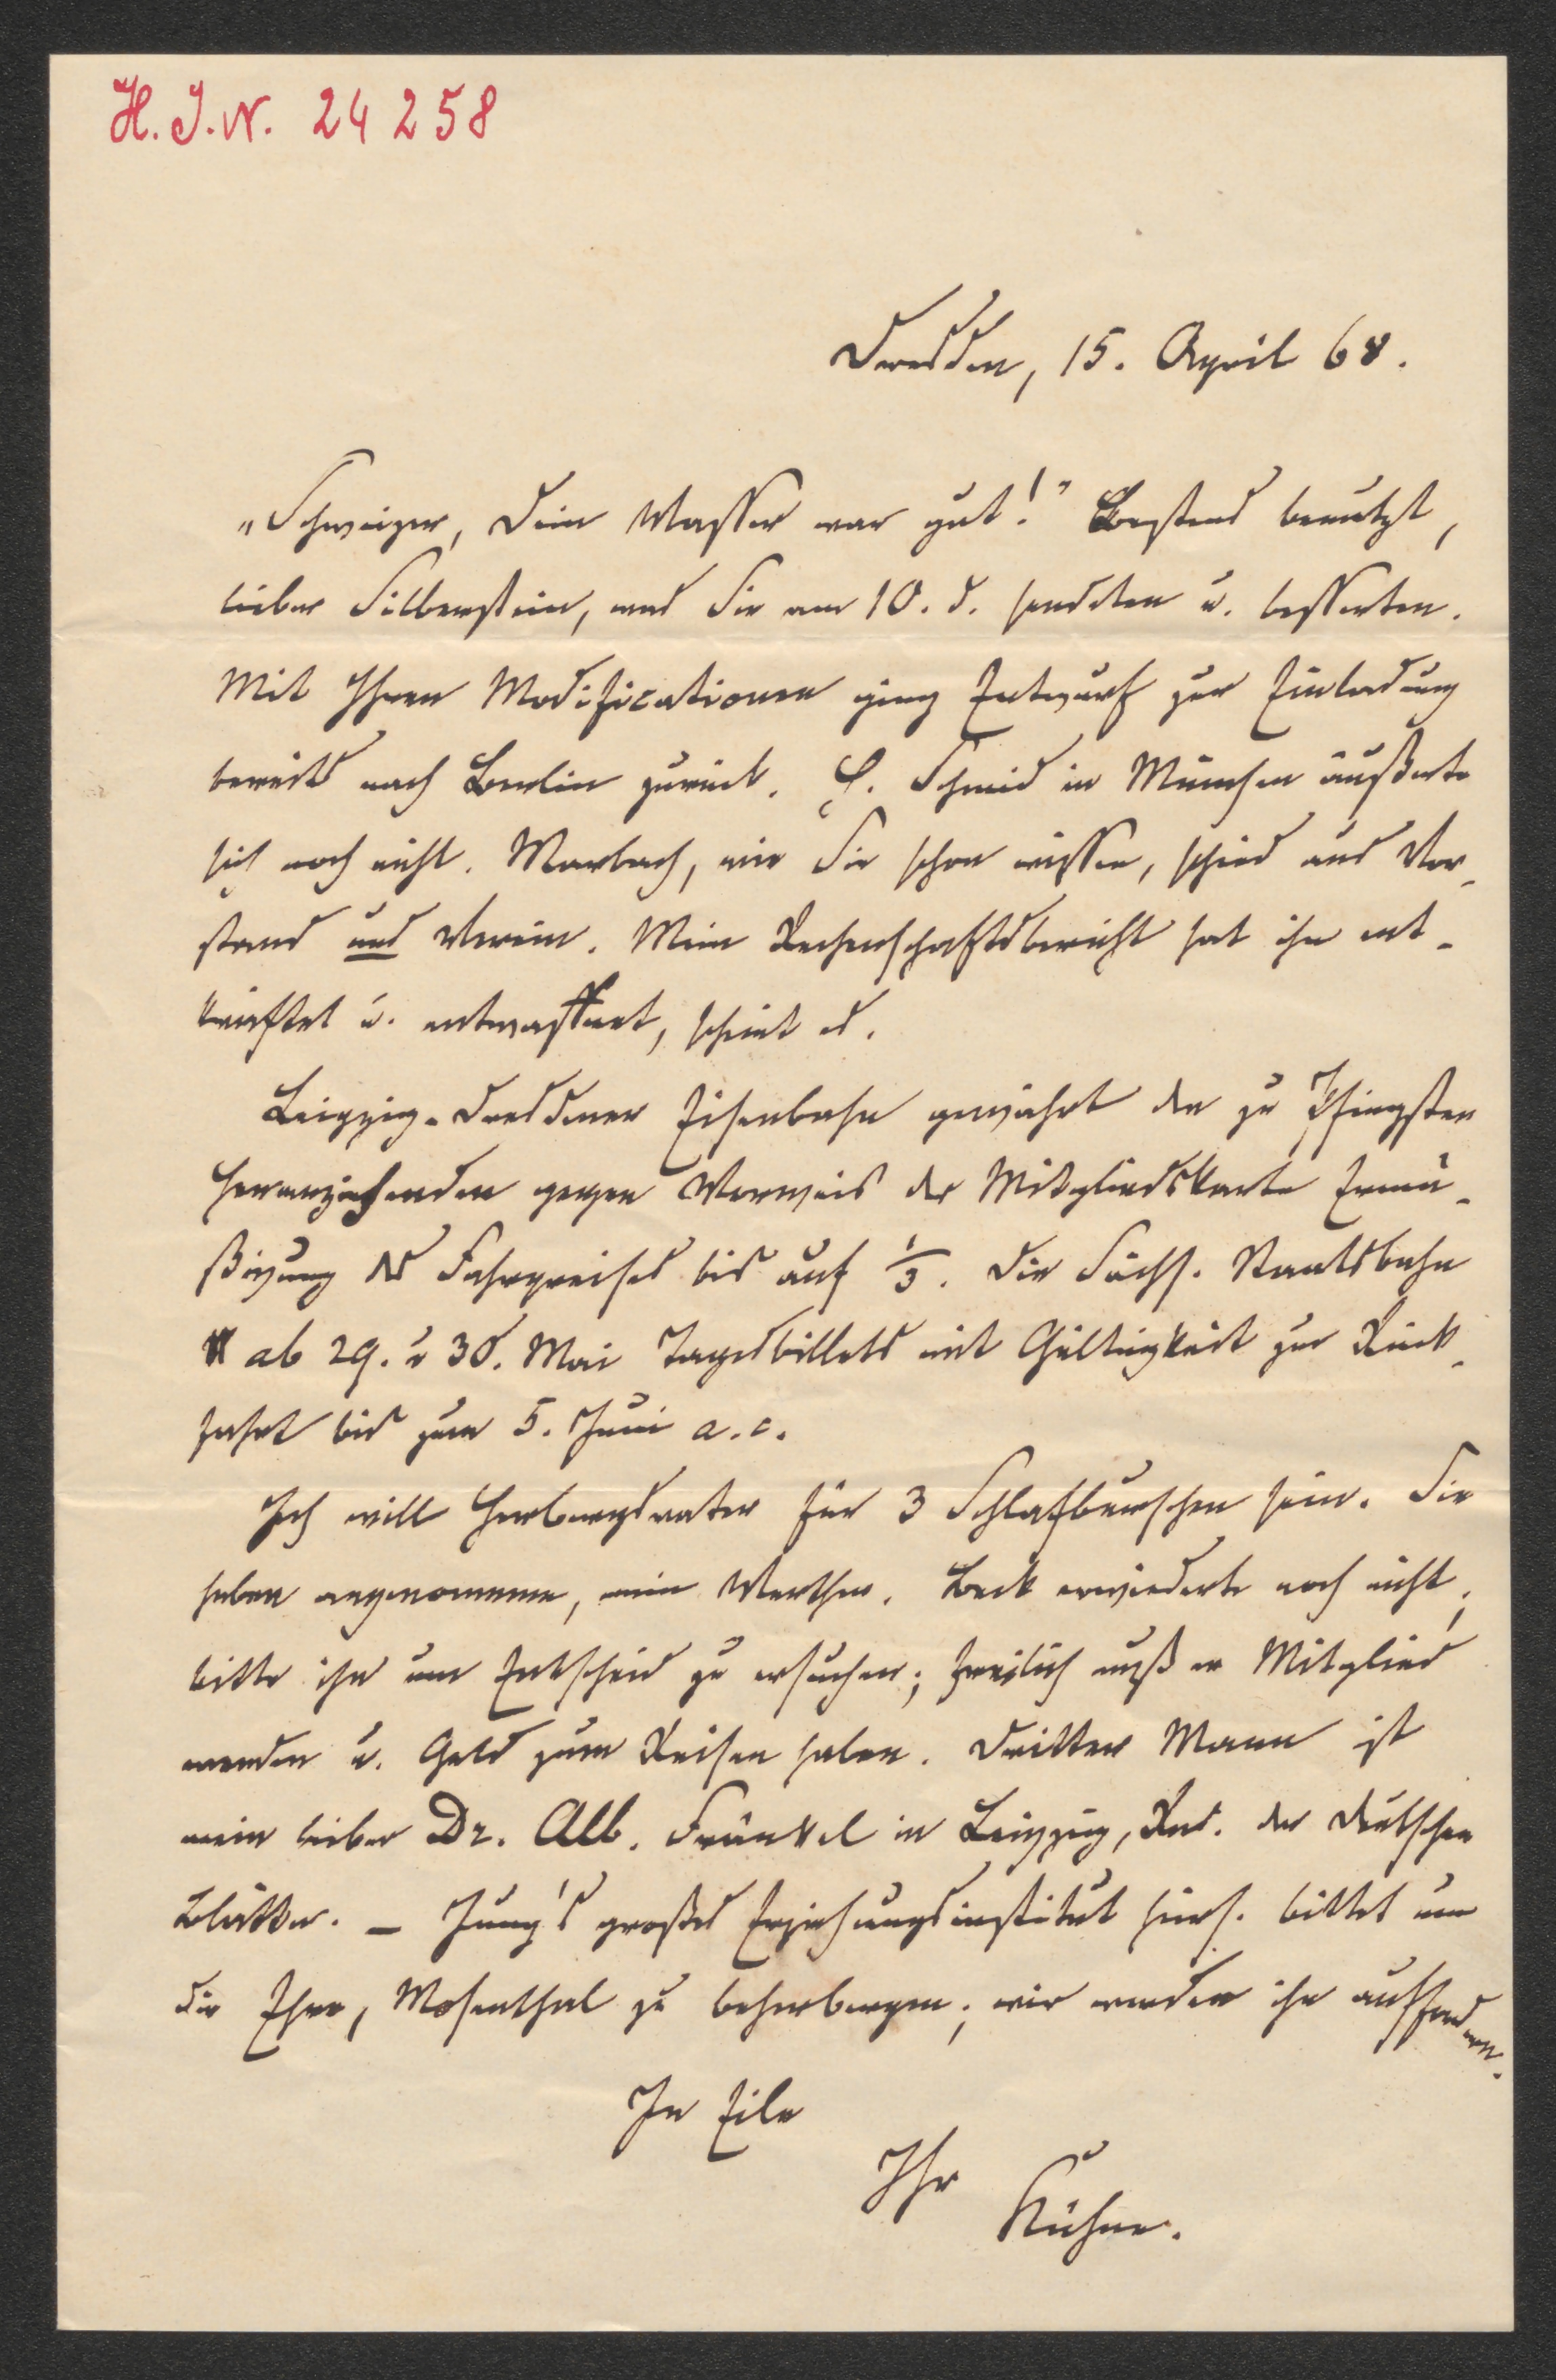 H. I. N. 24 258
Dresden, 15. April 68.
„Schweizer, Dein Wasser war gut!" Bestens benutzt,
lieber Silberstein, was Sie am 10. d. sendeten u. besserten.
Mit Ihren Modificationen ging Entwurf zur Einladung
bereits nach Berlin zurück. H. Schmid in München äußerte
sich noch nicht. Marbach, wie Sie schon wissen, schied aus Vor-
stand und Verein. Mein Rechenschaftsbericht hat ihn ent-
kräftet u. entwaffnet, scheint es.
Leipzig-Dresdener Eisenbahn gewährt den zu Pfingsten
Heranziehenden gegen Vorweis der Mitgliedskarte Ermä-
ßigung des Fahrpreises bis auf 1/3. Die Sächs. Staatsbahn
ab 29. u 30. Mai Tagesbillets mit Gültigkeit zur Rück-
fahrt bis zum 5. Juni a. c.
Ich will Herbergsvater für 3 Schlafburschen sein. Sie
haben angenommen, mein Werther. Beck erwiederte noch nicht;
bitte ihn um Entscheid zu ersuchen; freilich muß er Mitglied
werden u. Geld zum Reisen haben. Dritter Mann ist
mein lieber Dr. Alb. Fränkel in Leipzig, Red. der Deutschen
Blätter. – Jung's großes Erziehungsinstitut hies. bittet um
die Ehre, Mosenthal zu beherbergen; wir werden ihn auffordern.
In Eile
Ihr
Kühne.